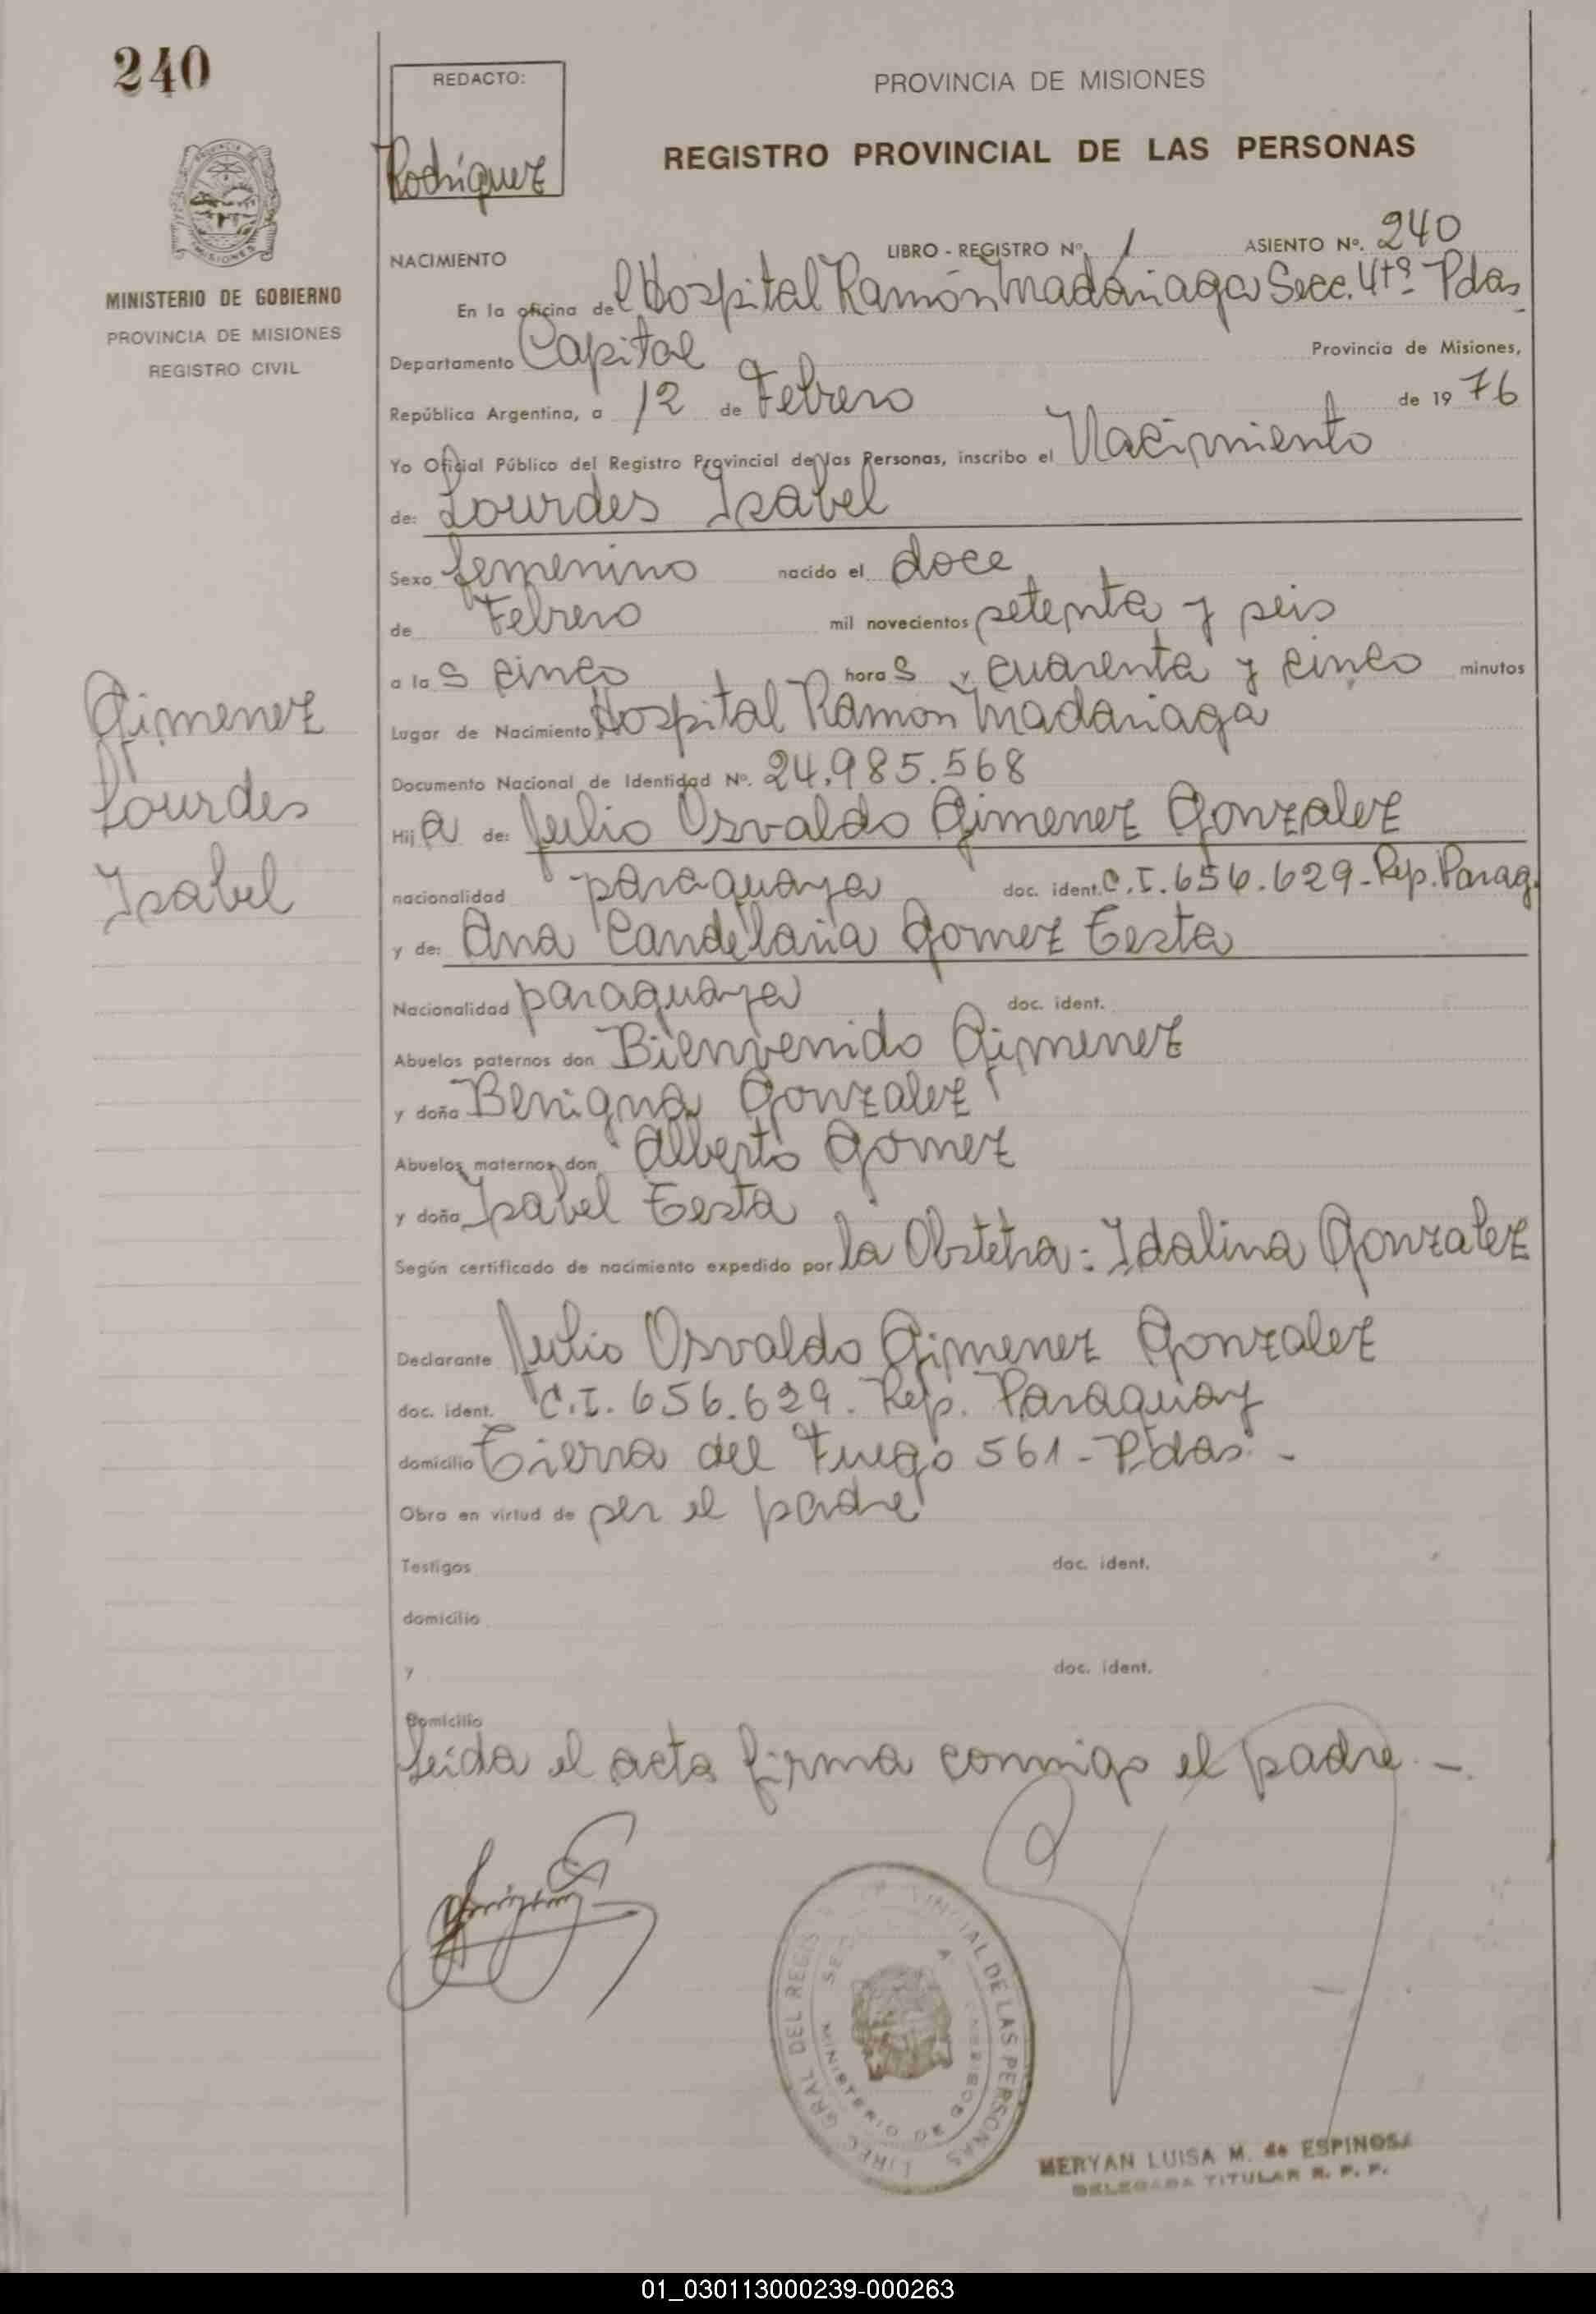 240
REDACTO:
Rodríguez
PROVINCIA DE MISIONES
REGISTRO PROVINCIAL DE LAS PERSONAS
MINISTERIO DE GOBIERNO
PROVINCIA DE MISIONES
REGISTRO CIVIL
NACIMIENTO LIBRO - REGISTRO Nº. 1 ASIENTO Nº. 240
En la oficina del Hospital Ramón Madariaga Secc. 4tª Pdas
Departamento Capital Provincia de Misiones,
República Argentina, a 12 de Febrero de 1976
Yo Oficial Público del Registro Provincial de las Personas, inscribo el Nacimiento
de: Lourdes Isabel
Sexo femenino nacido el doce
de Febrero mil novecientos setenta y seis
a las cinco horas y cuarenta y cinco minutos
Lugar de Nacimiento Hospital Ramon Madariaga
Documento Nacional de Identidad Nº. 24.985.568
Hija de: Julio Osvaldo Gimenez Gonzalez
nacionalidad paraguaya doc. ident. C.I. 656.629 - Rep. Parag.
y de: Ana Candelaria Gomez Testa
Nacionalidad paraguaya doc. ident.
Abuelos paternos don Bienvenido Gimenez
y doña Benigna Gonzalez
Abuelos maternos don Alberto Gomez
y doña Isabel Testa
Según certificado de nacimiento expedido por la Obstetra: Idalina Gonzalez
Declarante Julio Osvaldo Gimenez Gonzalez
doc. ident. C.I. 656.629. Rep. Paraguay
domicilio Tierra del Fuego 561 - Pdas. -
Obra en virtud de ser el padre
Testigos doc. ident.
domicilio
y doc. ident.
Domicilio
Leida el acta firma conmigo el padre. -
Gimenez
Lourdes
Isabel
DIREC. GRAL DEL REGIS PROVINCIAL DE LAS PERSONAS
MINISTERIO DE GOBIERNO
MERYAN LUISA M. de ESPINOSA
DELEGADA TITULAR R. P. P.
01_030113000239-000263